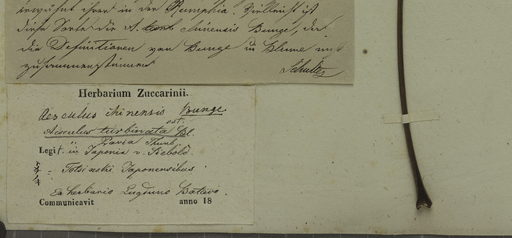 erwähnt ihrer in der Rumphia. Vielleicht ist
diese Sorte die A. chinensis Bunge, da
die Definitionen von Bunge u Blume nicht
zusammenstimmen.
Schultes
Herbarium Zuccarinii.
Aesculus chinensis Bunge
est.
Aesculus turbinata Bl.
" Pavia Thunb.
Legit. in Japonia v. Siebold.
Totsi nocki Japonensibus
Ex herbario Lugduno Batavo.
Communicavit anno 18